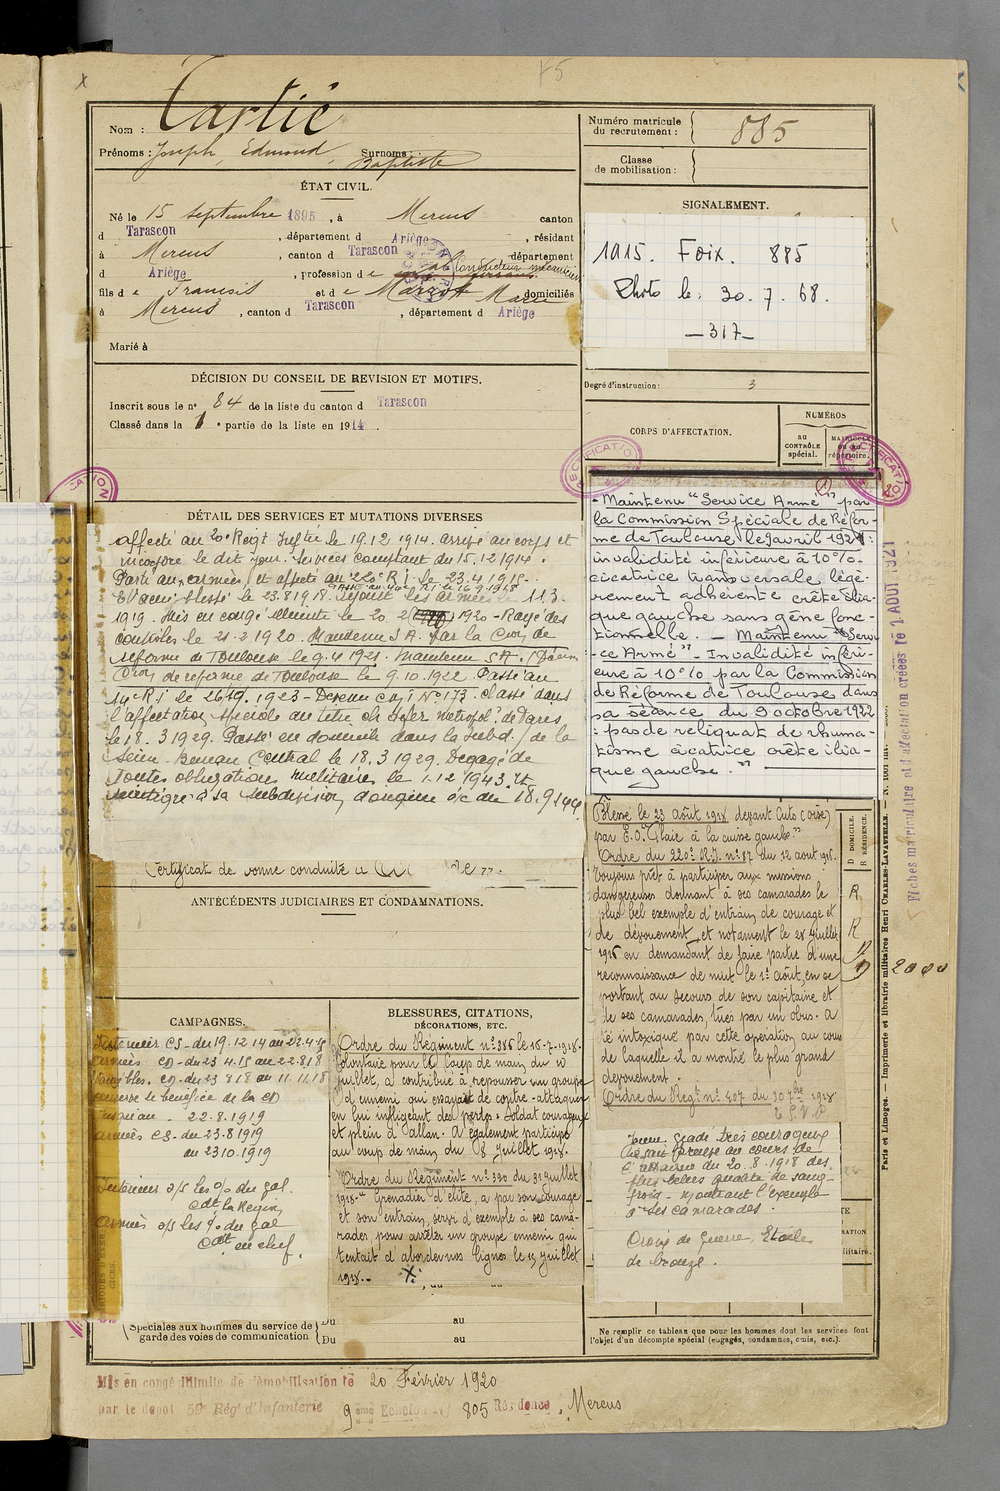 75
Nom : Tartié
Prénoms : Joseph, Edmond, Baptiste Surnoms :
Numéro matricule du recrutement : 885
Classe de mobilisation :
ÉTAT CIVIL.
Né le 15 septembre 1895, à Mercus canton
d Tarascon, département d Ariège, résidant
à Mercus, canton d Tarascon département
d Ariège, profession de Conducteur mécanicien
fils de Francois et de Marie domiciliés
à Mercus, canton d Tarascon, département d Ariège
Marié à
SIGNALEMENT.
1915. Foix. 885
Photo le. 30.7.68.
—317—
Degré d'instruction : 3
DÉCISION DU CONSEIL DE REVISION ET MOTIFS.
Inscrit sous le n° 84 de la liste du canton d Tarascon
Classé dans la 1e partie de la liste en 1914.
CORPS D'AFFECTATION.
NUMÉROS
au CONTRÔLE spécial.
MATRICULE ou au répertoire.
RECTIFICATION
DÉTAIL DES SERVICES ET MUTATIONS DIVERSES
affecté au 20e Régt Inftie le 19.12.1914. arrivé au corps et
incorporé le dit jour. Services comptant du 15.12.1914.
Parti aux armées et affecté au 220e R.I. le 23.4.1915.
Passé au R.I. le 16.9.1918
Evacué blessé le 23.8.1918. Rejoint les armées le 11.3.
1919. Mis en congé illimité le 20.2 1920 - Rayé des
contrôles le 21.2.1920. Maintenu S A. par la Con de
réforme de Toulouse le 9.4.1921. Maintenu S A. (Décon
Con de réforme de Toulouse le 9.10.1922. Passé au
14e R.I. le 26.9.1923 - N° 173. Classé dans
l'affectation spéciale au titre ch de fer metropol. de Paris
le 18.3.1929. Passé en domicile dans la subd. de la
Seine Bureau Central le 18.3.1929. Dégagé de
Toutes obligations militaires le 1.12.1943. Et
réintégré à sa subdivision d'origine à/c du 18.9.1944
Certificat de bonne conduite
"Maintenu "Service Armé" par
la Commission Spéciale de Réfor-
me de Toulouse le 9 avril 1921 :
invalidité inférieure à 10%
cicatrice transversale légè-
rement adhérente crête ilia-
que gauche sans gêne fonc-
tionnelle. — Maintenu "Servi-
ce Armé" - Invalidité inféri-
eure à 10% par la Commission
de Réforme de Toulouse dans
sa séance du 9 octobre 1922
: pas de reliquat de rhuma-
tisme cicatrice crête ilia-
que gauche."
ANTÉCÉDENTS JUDICIAIRES ET CONDAMNATIONS.
Blessé le 23 août 1918 devant Cuts (Oise)
par E.O. "Plaie à la cuisse gauche"
Ordre du 220e R.I. n° 87 du 12 août 1916.
Toujours prêt à participer aux missions
dangereuses donnant à ses camarades le
plus bel exemple d'entrain, de courage et
de dévouement, et notament le 28 Juillet
1916 en demandant de faire partie d'une
reconnaissance de nuit le 1er août, en se
portant au secours de son capitaine et
de ses camarades, tués par un obus. A
été intoxiqué par cette opération au cours
de laquelle il a montré le plus grand
dévouement.
Ordre du Régt n° 407 du 30 7bre 1918
Jeune gradé très courageux
a fait preuve au cours de
l'attaque du 20.8.1918 des
plus belles qualités de sang-
froid - montrant l'exemple
à ses camarades.
Croix de guerre, Etoile
de bronze.
D DOMICILE.
R RÉSIDENCE.
R
R
D
2000
CAMPAGNES.
Intérieur CS - du 19.12.14 au 22.4.15
Armées CD - du 23.4.15 au 22.8.18
Con Bles. CD - du 23 8 18 au 11.11.18
conserve le bénéfice de la CD
jusqu'au - 22.8.1919
armées CS - du 23.8.1919
au 23.10.1919
Intérieur o/s les % du gal
Cdt la Région
Armées o/s les % du gal
Cdt en chef.
BLESSURES, CITATIONS, DÉCORATIONS, ETC.
Ordre du Régiment n° 386 le 15-7-1918.
Volontaire pour le Coup de main du 10
juillet, a contribué à repousser un groupe
d'ennemi qui essayait de contre-attaquer
en lui infligeant des pertes : Soldat courageux
et plein d'allan. A également participé
au coup de main du 8 Juillet 1918.
Ordre du Régiment n° 390 du 31 juillet
1918 - "Grenadier d'élite, a par son courage
et son entrain, servi d'exemple à ses cama-
rades, pour arrêter un groupe ennemi qui
tentait d'aborder nos lignes le 15 juillet
1918.-
Spéciales aux hommes du service de garde des voies de communication
Du au
Du au
Ne remplir ce tableau que pour les hommes dont les services font
l'objet d'un décompte spécial (engagés, condamnés, omis, etc.).
Mis en congé illimité de démobilisation le 20 Février 1920
par le dépôt 59e Régt d'Infanterie 9eme Echelon N° 805 Résidence, Mercus
Fiches matriculaire et d'affectation créées le 1 AOUT 1921
Paris et Limoges. — Imprimerie et librairie militaires Henri CHARLES-LAVAUZELLE.